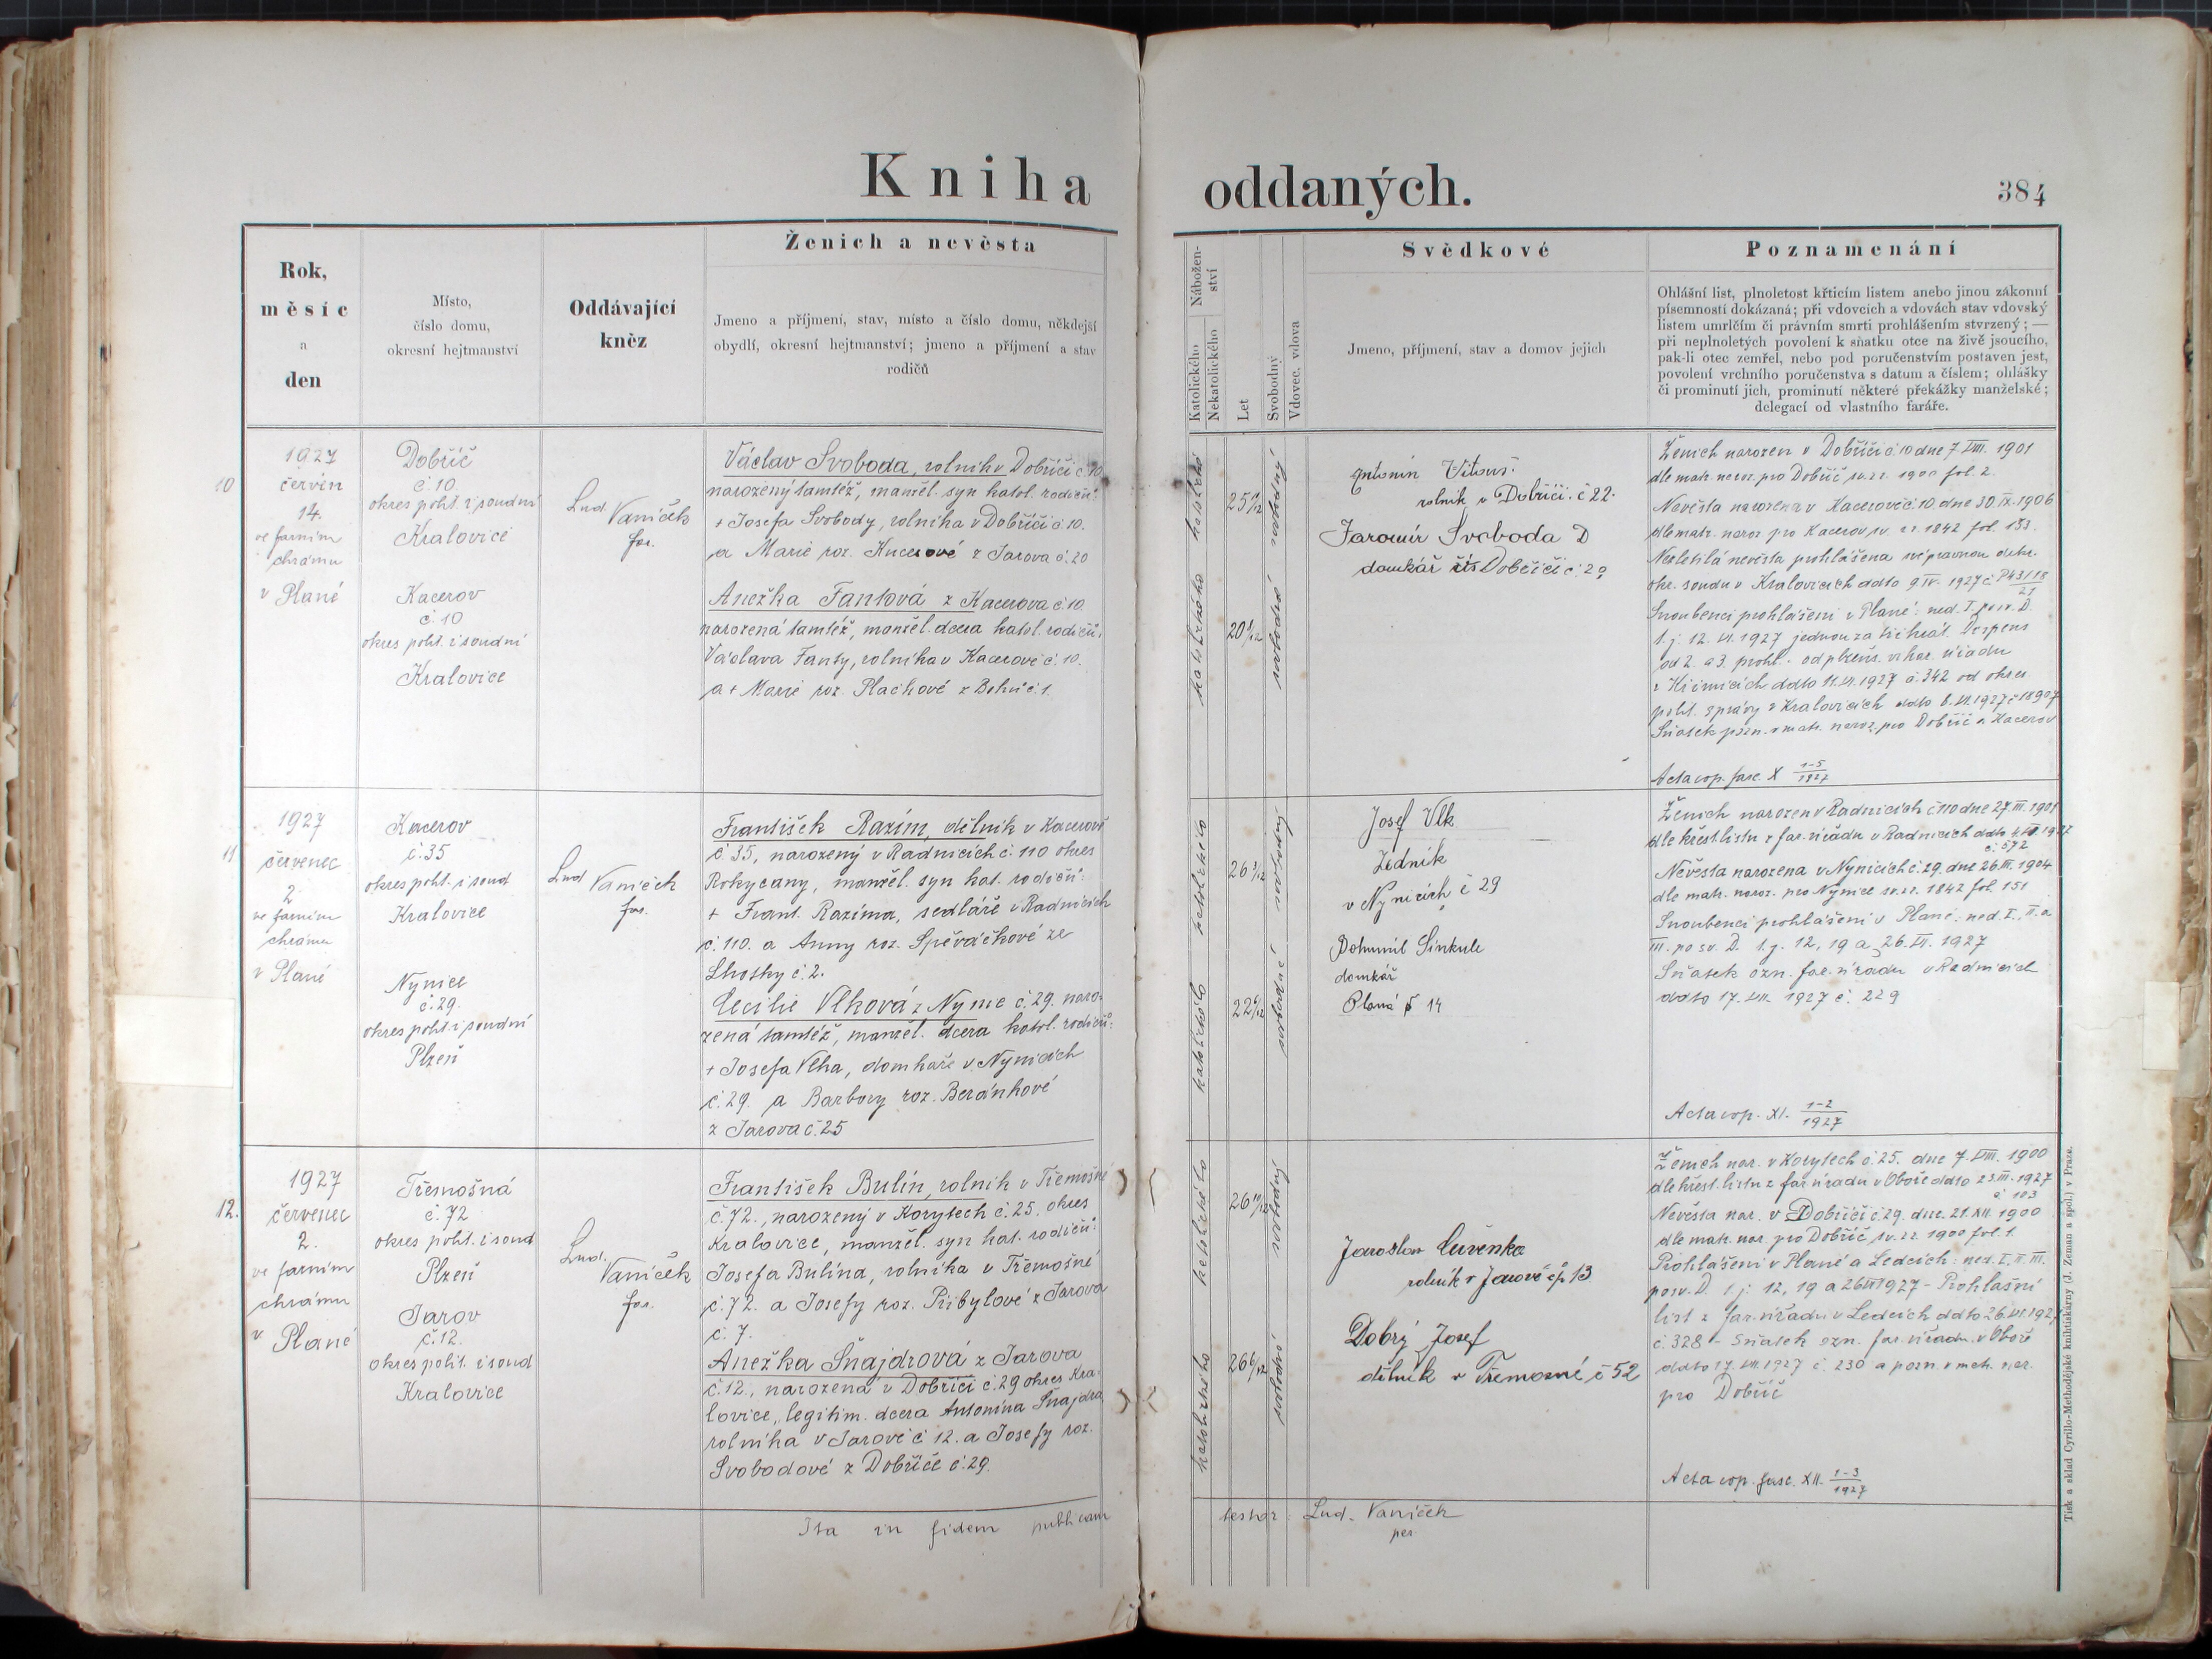 Kniha
oddaných.
384
Rok,
měsíc
a
den
Místo,
číslo domu,
okresní hejtmanství
Oddávající
kněz
Ženich a nevěsta
Jmeno a příjmení, stav, místo a číslo domu, někdejší
obydlí, okresní hejtmanství; jmeno a příjmení a stav
rodičů
Nábožen-
ství
Katolického
Nekatolického
Let
Svobodný
Vdovec, vdova
Svědkové
Jmeno, příjmení, stav a domov jejich
Poznamenání
Ohlášní list, plnoletost křticím listem anebo jinou zákonní
písemností dokázaná; při vdovcích a vdovách stav vdovský
listem umrlčím či právním smrti prohlášením stvrzený; —
při neplnoletých povolení k sňatku otce na živě jsoucího,
pak-li otec zemřel, nebo pod poručenstvím postaven jest,
povolení vrchního poručenstva s datum a číslem; ohlášky
či prominutí jich, prominutí některé překážky manželské;
delegací od vlastního faráře.
10
1927
červen
14.
ve farním
chrámu
v Plané
Dobříč
č. 10.
okres polit. i soudní
Kralovice
Kacerov
č. 10
okres polit. i soudní
Kralovice
Lud. Vaníček
far.
Václav Svoboda, rolník v Dobříči č. 10.
narozený tamtéž, manžel. syn katol. rodičů:
+ Josefa Svobody, rolníka v Dobříči č. 10.
a Marie roz. Kucerové z Jarova č. 20
Anežka Fantová z Kacerova č. 10.
narozená tamtéž, manžel. dcera katol. rodičů:
Václava Fanty, rolníka v Kacerově č. 10.
a + Marie roz. Plachové z č. 1.
katolické
svobodný
katolického
svobodná
Antonín Vitouš.
rolník v Dobříči. č 22.
Jaromír Svoboda
domkář Dobříči č. 2
Ženich narozen v Dobříči č. 10 dne 7. VIII. 1901
dle matr. naroz. pro Dobříč sv. 1900 fol. 2.
Nevěsta narozena v Kacerově č. 10. dne 30. IX. 1906
dle matr. naroz. pro Kacerov sv. 1842 fol. 183.
Nezletilá nevěsta prohlášena svéprávnou dekr.
okr. soudu v Kralovicích ddto 9. IV. 1927 č. P 43/18
21
Snoubenci prohlášeni v Plané: ned. I. po sv. D.
t. j. 12. VI. 1927 jednou za třikrát. Dispens
od 2. a 3. prohl. od vikar. úřadu
ddto 11. VI. 1927 č. 342 od okres.
polit. správy v Kralovicích ddto 8. VI. 1927 č. 18907
Sňatek pozn. v matr. naroz. pro Dobříč a Kacerov
Acta cop. fasc. X 1-5
1927
11
1927
červenec
2
ve farním
chrámu
v Plané
Kacerov
č. 35
okres polit. i soud
Kralovice
Nynice
č. 29.
okres polit. i soudní
Plzeň
Lud Vaníček
far.
František Razím, dělník v Kacerově
č. 35, narozený v Radnicích č. 110 okres
Rokycany, manžel. syn kat. rodičů:
+ Frant. Razíma, sedláře v Radnicích
č. 110. a Anny roz. Spěváčkové ze
Lhotky č. 2.
Cecilie Vlková z Nynic č. 29. naro-
zená tamtéž, manžel. dcera katol. rodičů:
+ Josefa Vlka, domkáře v Nynicích
č. 29. a Barbory roz. Beránkové
z Jarova č. 25
katolického
svobodný
katolického
svobodná
Josef Vlk
Zedník
v Nynicích č 29
Bohumil Sinkule
domkář
Planá č 14
Ženich narozen v Radnicích č. 110 dne 27. III. 1901
dle křest. listu z far. úřadu v Radnicích ddto 1927
č. 572
Nevěsta narozena v Nynicích č. 29. dne 26. 1904
dle matr. naroz. pro Nynice sv. 1842 fol. 151
Snoubenci prohlášeni v Plané: ned. I., II. a
III. po sv. D. t. j. 12, 19 a 26. VI. 1927
Sňatek ozn. far. úřadu v Radnicích
ddto 17. VII. 1927 č. 229
Acta cop. XI. 1-2
1927
12.
1927
červenec
2.
ve farním
chrámu
v Plané
Třemošná
č. 72
okres polit. i soud
Plzeň
Jarov
č. 12.
okres polit. i soud
Kralovice
Lud. Vaníček
far.
František Bulín, rolník v Třemošné
č. 72., narozený v Korytech č. 25. okres
Kralovice, manžel. syn kat. rodičů:
Josefa Bulína, rolníka v Třemošné
č. 72. a Josefy roz. Přibylové z Jarova
č. 7.
Anežka Šnajdrová z Jarova
č. 12., narozená v Dobříči č. 29 okres Kra-
lovice, legitim. dcera Antonína Šnajdra,
rolníka v Jarově č 12. a Josefy roz.
Svobodové z Dobříče č. 29.
katolického
svobodný
katolického
svobodná
Jaroslav Červenka
rolník v Jarově čp 13
Dobrý Josef
dělník v Třemošné č 52
Ženich nar. v Korytech č. 25. dne 7. VIII. 1900
dle křest. listu z far. úřadu v Oboře ddto 23. III. 1927
č. 103
Nevěsta nar. v Dobříči č. 29. dne 21. XII. 1900
dle matr. nar. pro Dobříč sv. 1900 fol. 1.
Prohlášeni v Plané a Ledcích: ned. I., II. III.
po sv. D. t. j. 12, 19 a 26 VI 1927 - Prohlašní
list z far. úřadu v Ledcích ddto 26. VI. 1927
č. 328 - Sňatek ozn. far. úřadu v Oboře
ddto 17. VII. 1927 č. 230 a pozn. v matr. nar.
pro Dobříč
Acta cop. fasc. XII. 1-3
1927
Ita in fidem publicam
testor: Lud. Vaníček
Tisk a sklad Cyrillo-Methodějské knihtiskárny (J. Zeman a spol.) v Praze.